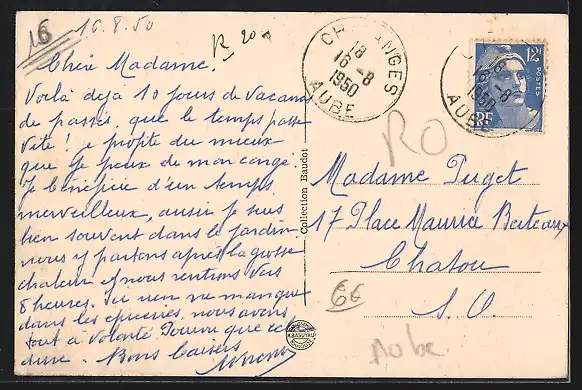 16.8.50
R 20
Chère Madame.
Voilà déjà 10 jours de vacances
de passés, que le temps passe
vite! je profite du mieux
que je peux de mon congé.
Je bénéficie d'un temps
merveilleux, aussi je suis
bien souvent dans le jardin.
nous y partons après la grosse
chaleur et nous rentrons vers
8 heures. Ici rien ne manque
dans les épiceries, nous avons
tout à volonté. Pourvu que ce
dure. Bons baisers
CH ANGES
18
16 -8
1950
AUBE
18
16 -8
1950
AUBE
12F
POSTES
RF
RO
Collection Baudot
Madame Puget
17 Place Maurice Berteaux
Chatou
S. O.
6€
Aube